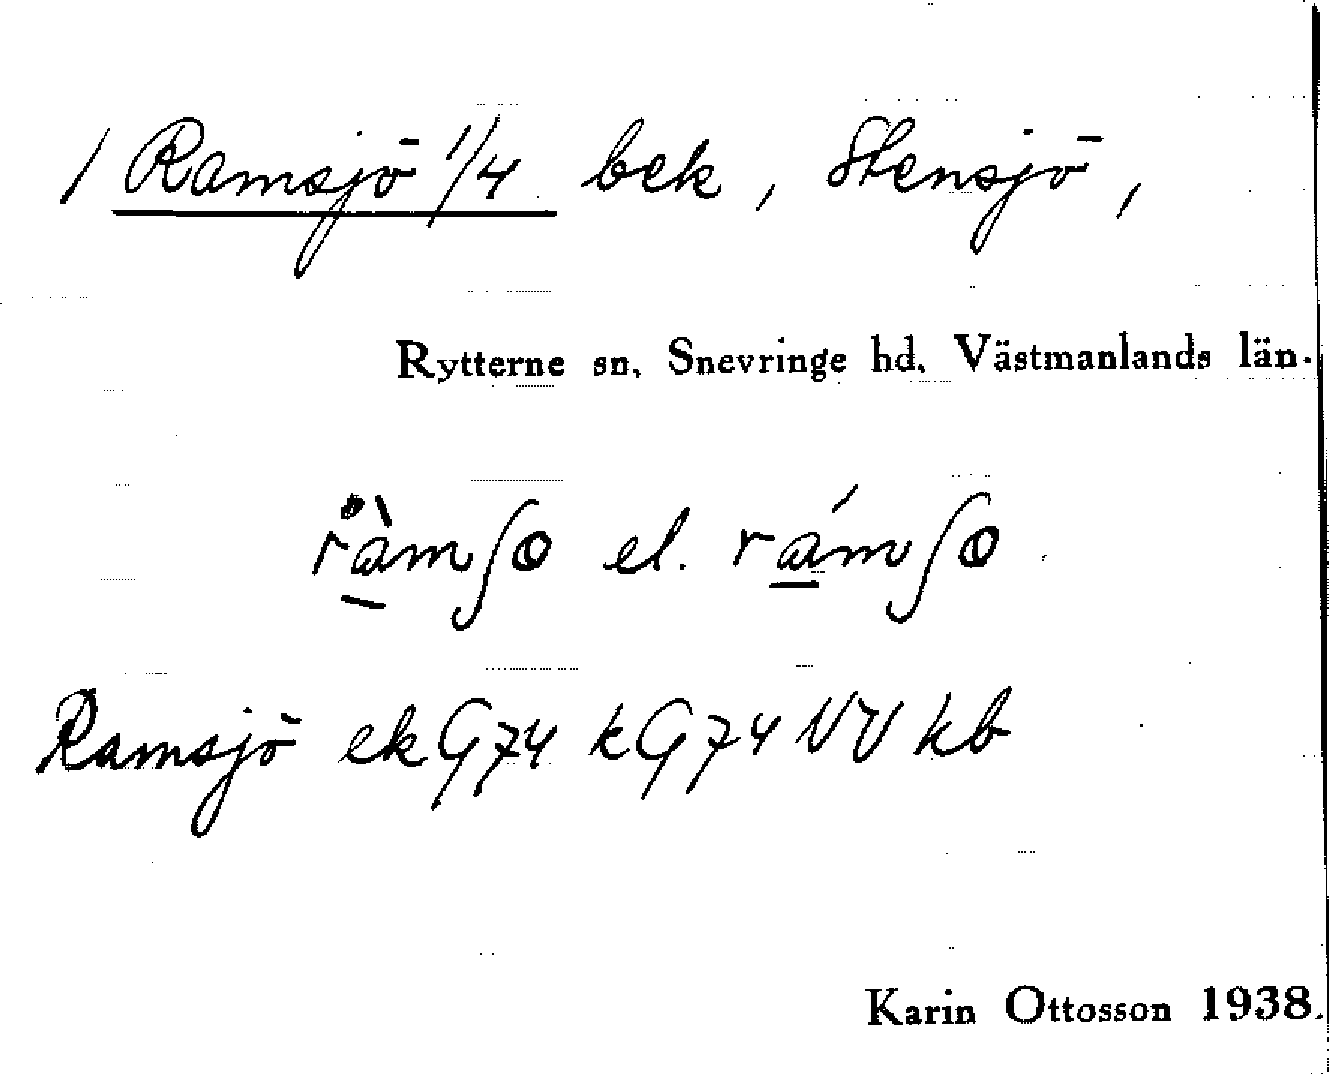 / Ramsjö 1/4 bek, Stensjö,
Rytterne sn, Snevringe hd. Västmanlands län.
ràmʃo el. rámʃo
Ramsjö ek G74 k G74 VV kb
Karin Ottosson 1938.